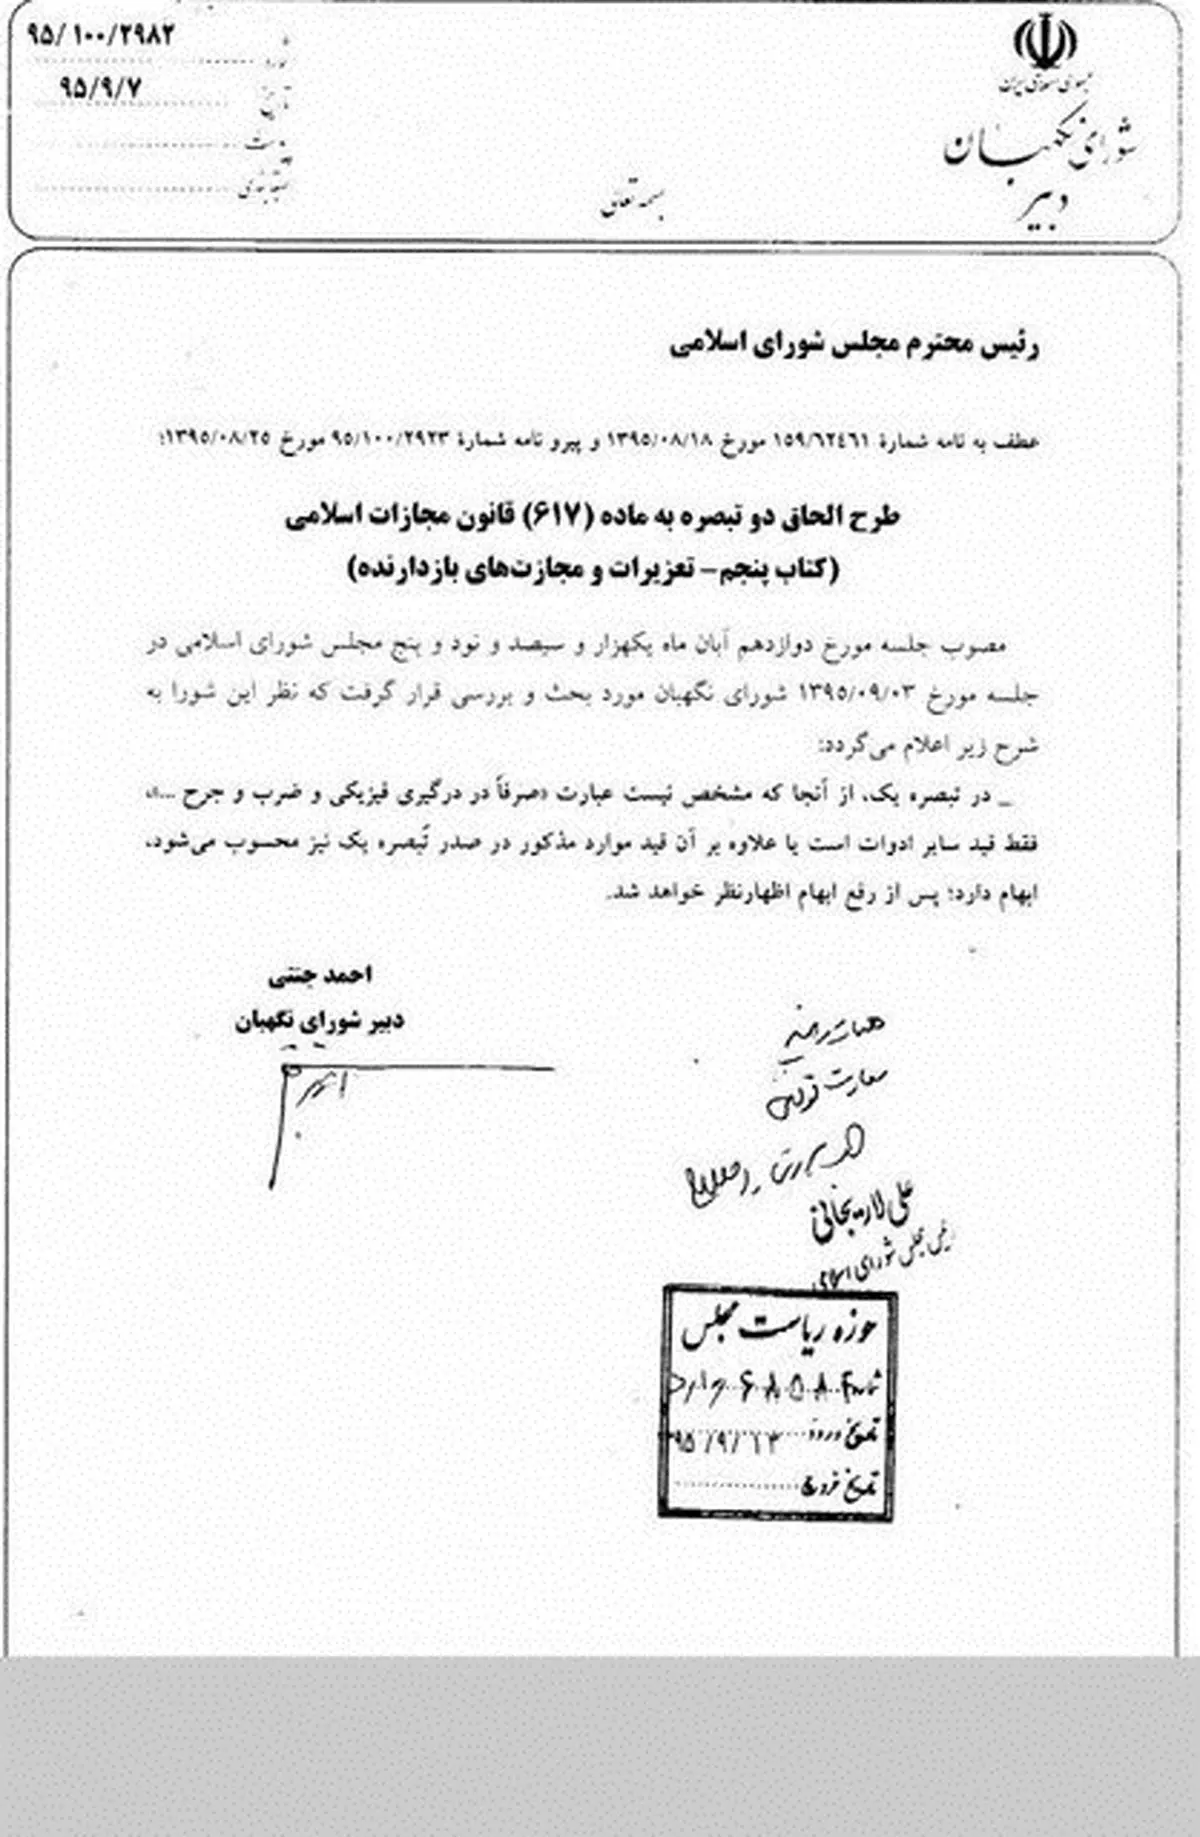 جمهوری اسلامی ایران
شورای نگهبان
دبیر
بسمه تعالی
۹۵/۱۰۰/۲۹۸۲
تاریخ ۹۵/۹/۷
رئیس محترم مجلس شورای اسلامی
عطف به نامه شمارهٔ ۱۵۹/۶۲٤٦۱ مورخ ۱۳۹۵/۰۸/۱۸ و پیرو نامه شمارهٔ ۹۵/۱۰۰/۲۹۲۳ مورخ ۱۳۹۵/۰۸/۲۵؛
طرح الحاق دو تبصره به ماده (۶۱۷) قانون مجازات اسلامی
(کتاب پنجم– تعزیرات و مجازت‌های بازدارنده)
مصوب جلسه مورخ دوازدهم آبان ماه یکهزار و سیصد و نود و پنج مجلس شورای اسلامی در
جلسه مورخ ۱۳۹۵/۰۹/۰۳ شورای نگهبان مورد بحث و بررسی قرار گرفت که نظر این شورا به
شرح زیر اعلام می‌گردد:
_ در تبصره یک، از آنجا که مشخص نیست عبارت «صرفاً در درگیری فیزیکی و ضرب و جرح ...»،
فقط قید سایر ادوات است یا علاوه بر آن قید موارد مذکور در صدر تبصره یک نیز محسوب می‌شود،
ابهام دارد؛ پس از رفع ابهام اظهارنظر خواهد شد.
احمد جنتی
دبیر شورای نگهبان
معاونت قوانین
علی لاریجانی
رئیس مجلس شورای اسلامی
حوزه ریاست مجلس
شماره
تاریخ ورود ۹۵/۹/۱۳
تاریخ خروج